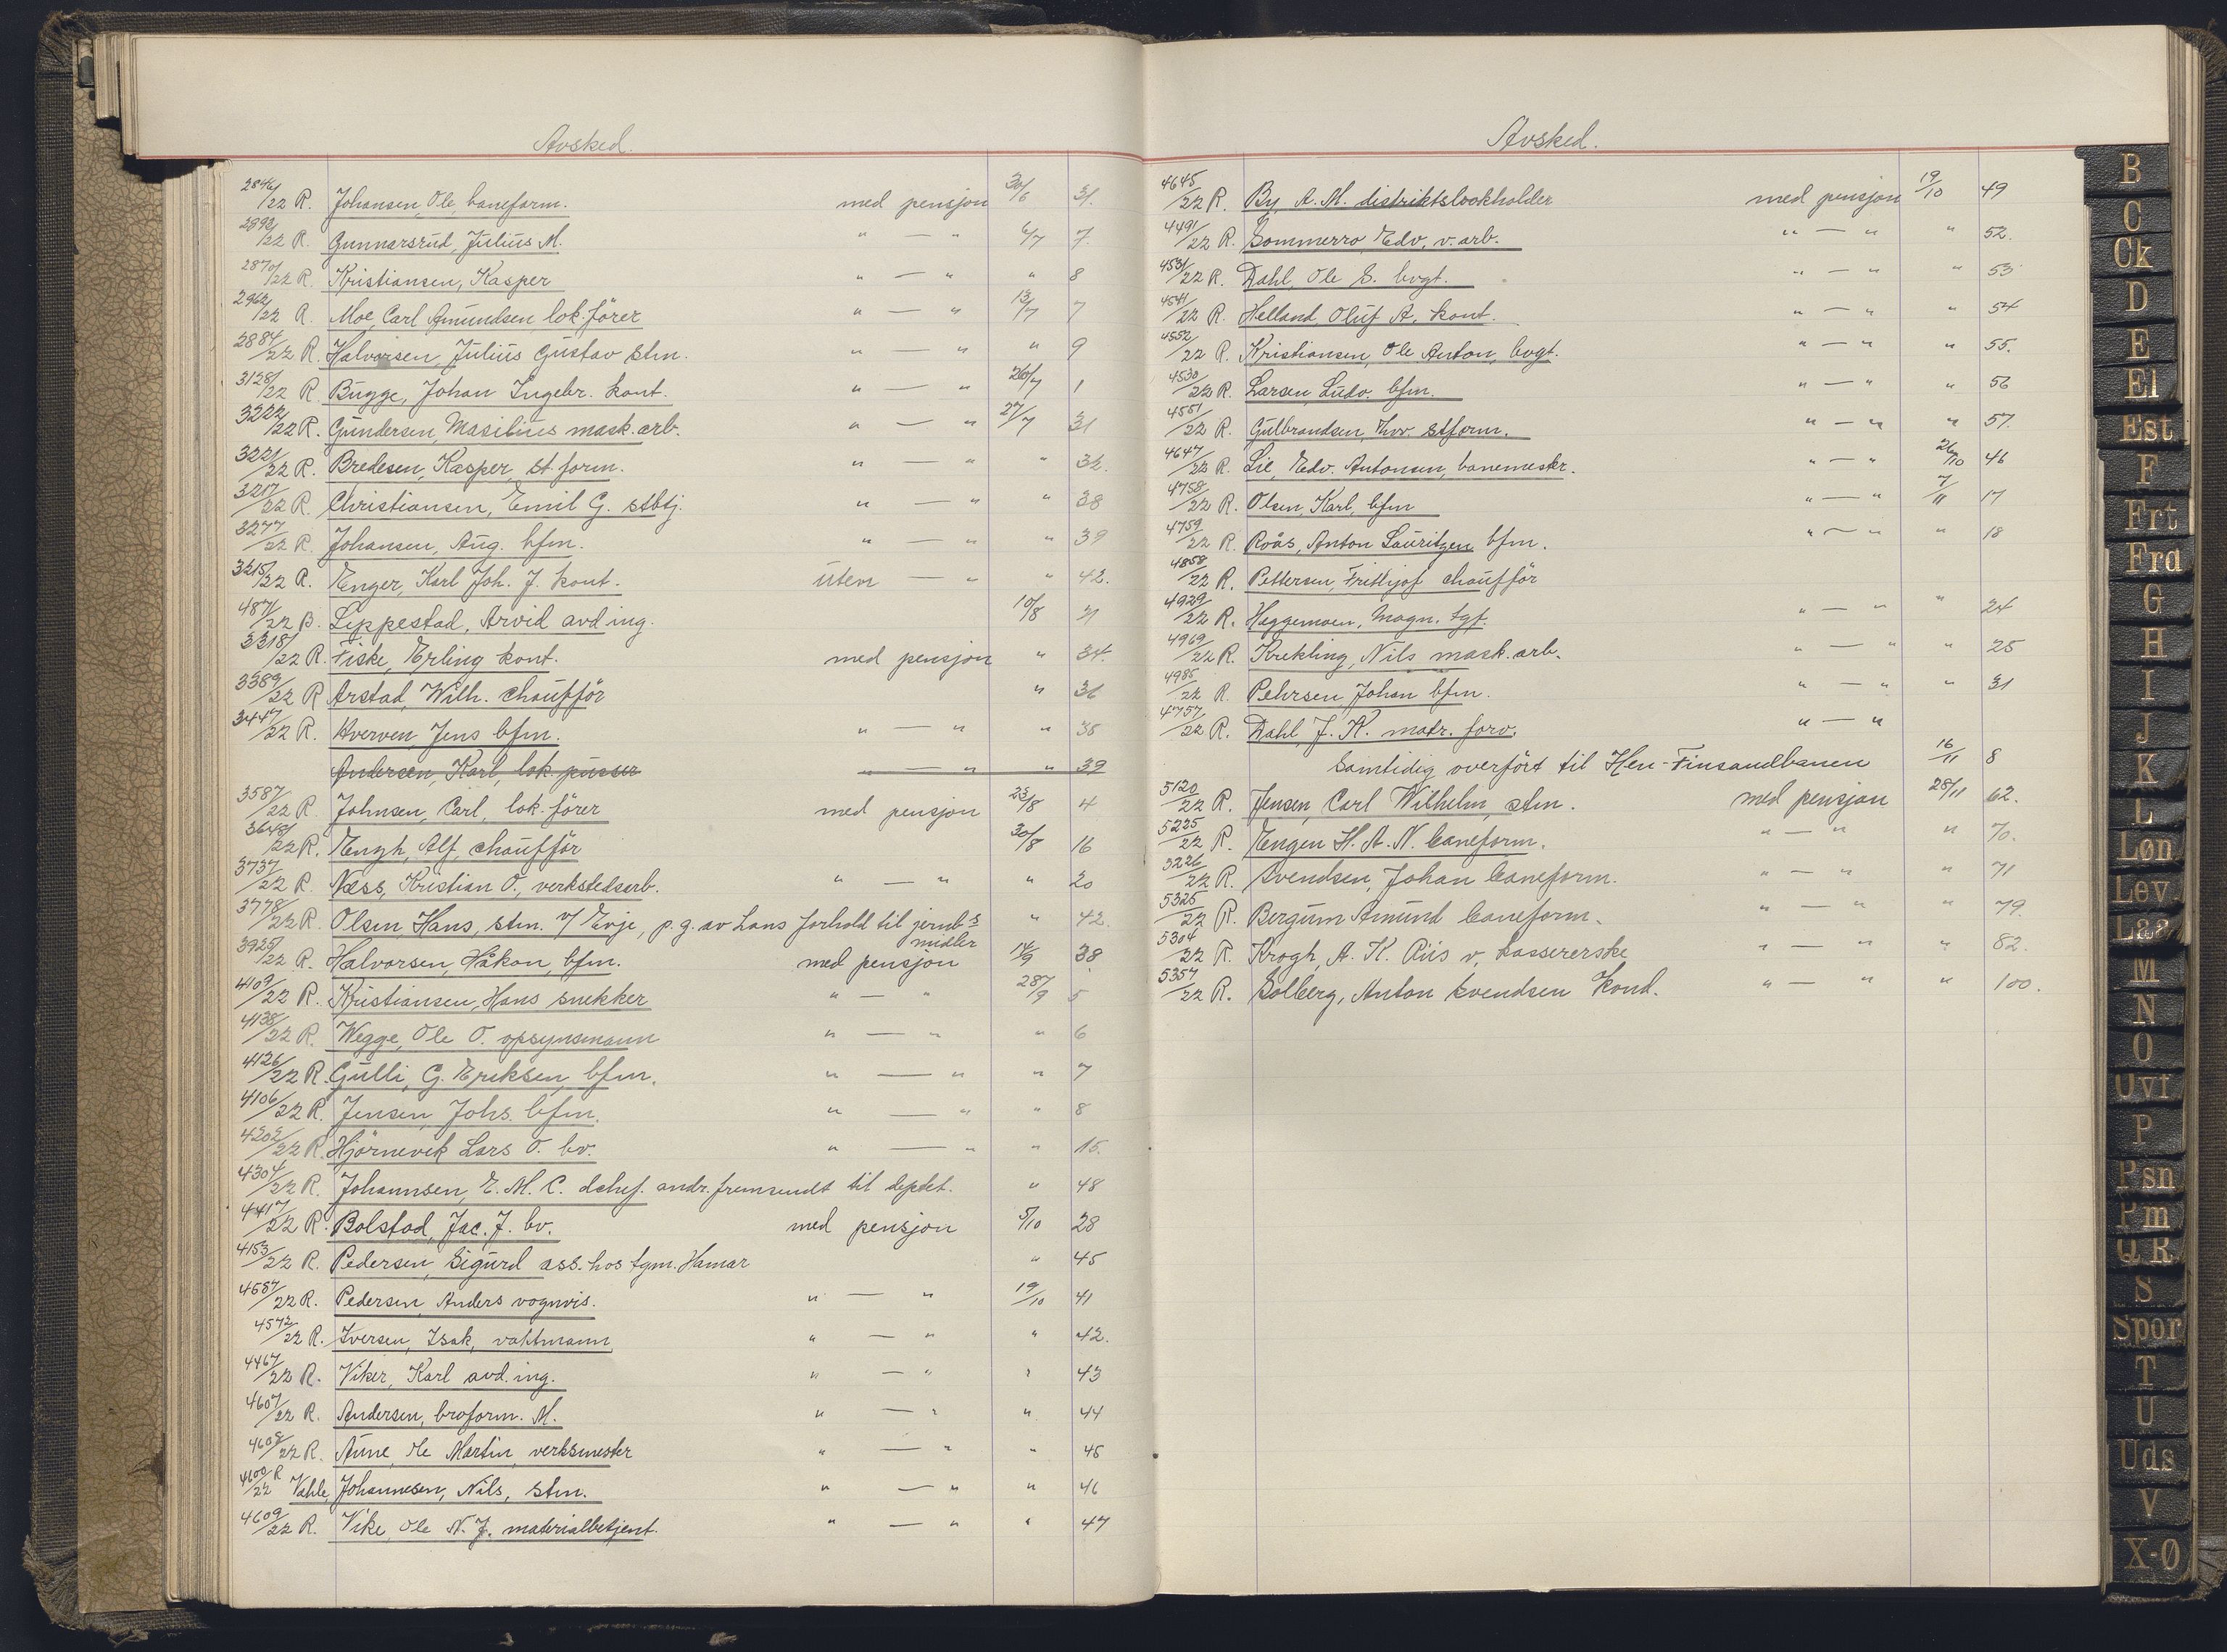 Avsked.
2846/22 R. Johansen, Ole, baneform. med pensjon 30/6 31.
2892/22 R. Gunnarsrud, Julius M. " — " 6/7 7.
2870/22 R. Kristiansen, Kasper " — " " 8
2962/22 R. Moe, Carl Amundsen, lok.förer " — " 13/7 7
2884/22 R. Halvorsen, Julius Gustav stm. " — " " 9
3128/22 R. Bugge, Johan Ingebr. kont. " — " 20/7 1
3222/22 R. Gundersen, Masilius mask.arb. " — " 27/7 31
3221/22 R. Bredesen, Kasper, st.form. " — " " 32.
3217/22 R. Christiansen, Emil G. stbtj. " — " " 38
3277/22 R. Johansen, Aug. bfm. " — " " 39
3215/22 R. Enger, Karl Joh. J. kont. uten — " " 42.
487/22 B. Lippestad, Arvid avd ing. 10/8 31
3318/22 R. Fiske, Erling kont. med pensjon " 34.
3389/22 R Arstad, Wilh. chaufför " 36
3447/22 R. Hverven, Jens bfm. " — " " 38
Andersen, Karl, lok.pusser " — " " 39
3587/22 R. Johnsen, Carl, lok.förer med pensjon 23/8 4
3648/22 R. Engh, Alf, chaufför 30/8 16
3737/22 R. Næss, Kristian O., verkstedsarb. " — " " 20
3778/22 R. Olsen, Hans, stm. v/ Evje, p.g.av hans forhold til jernb.s " 42.
midler
3925/22 R. Halvorsen, Håkon, bfm. med pensjon 14/9 38
4109/22 R. Kristiansen, Hans snekker " — " 28/9 5
4138/22 R. Wegge, Ole O. opsynsmann " — " " 6
4126/22 R. Gulli, G. Eriksen, bfm. " — " " 7
4106/22 R. Jensen, Johs. bfm. " — " " 8
4202/22 R. Hjörnevik Lars O. bv. " — " " 15.
4304/22 R. Johannsen, E. M. C. dchef. andr. fremsendt til deptet. " 48
4417/22 R. Bolstad, Jac. J. bv. med pensjon 5/10 28
4153/22 R. Pedersen, Sigurd ass. hos tgm. Hamar " 45
4587/22 R. Pedersen, Anders vognvis. " — " 19/10 41
4572/22 R. Iversen, Isak, vaktmann " — " " 42.
4467/22 R. Viker, Karl avd. ing. " — " " 43
4607/22 R. Andersen, broform. M. " — " " 44
4608/22 R. Aune, Ole Martin, verksmester " — " " 45
4600/22 R Vahle, Johannesen, Nils, stm. " — " " 46
4609/22 R. Vike, Ole N. J. materialbetjent. " — " " 47
Avsked.
4645/22 R. By, A. M. distriktslookholder med pensjon 19/10 49
4491/22 R. Sommerro, Edv. v. arb. " — " " 52.
4531/22 R. Dahl, Ole S. bvgt. " — " " 53
4541/22 R. Helland, Oluf A. kont. " — " " 54
4552/22 R. Kristiansen, Ole Anton, bvgt. " — " " 55.
4530/22 R. Larsen, Ludv. bfm. " — " " 56
4551/22 R. Gulbrandsen, Thv. stform. " — " " 57.
4647/22 R. Lie, Edv. Antonsen, banemestr. " — " 26/10 46
4758/22 R. Olsen, Karl, bfm " — " 7/11 17
4759/22 R. Roås, Anton Lauritzen bfm. " — " " 18
4858/22 R. Pettersen, Frithjof chaufför
4929/22 R. Heggemoen, Magn. tgf. " — " " 24
4969/22 R. Krekling, Nils mask.arb. " — " " 25
4985/22 R. Pehrsen, Johan bfm. " — " " 31
4757/22 R. Dahl, J. K. matr. forv. " — "
Samtidig overfört til Hen-Finsandbanen 16/11 8
5120/22 R. Jensen, Carl Wilhelm, stm. med pensjon 28/11 62.
5225/22 R. Engen H. A. N. baneform. " — " " 70.
5226/22 R. Svendsen, Johan baneform. " — " " 71
5325/22 R. Bergum Amund baneform. " — " " 79.
5304/22 R. Krogh, A. K. Riis v. kassererske " — " " 82.
5357/22 R. Solberg, Anton Svendsen kond. " — " " 100.
B
C
Ck
D
E
El
Est
F
Frt
Frd
G
H
I
J
K
L
Løn
Lev.
Laa
M
N
O
Ovf
P
Psn
Pm
Q R
S
Spor
T
U
Uds
V
X-Ø